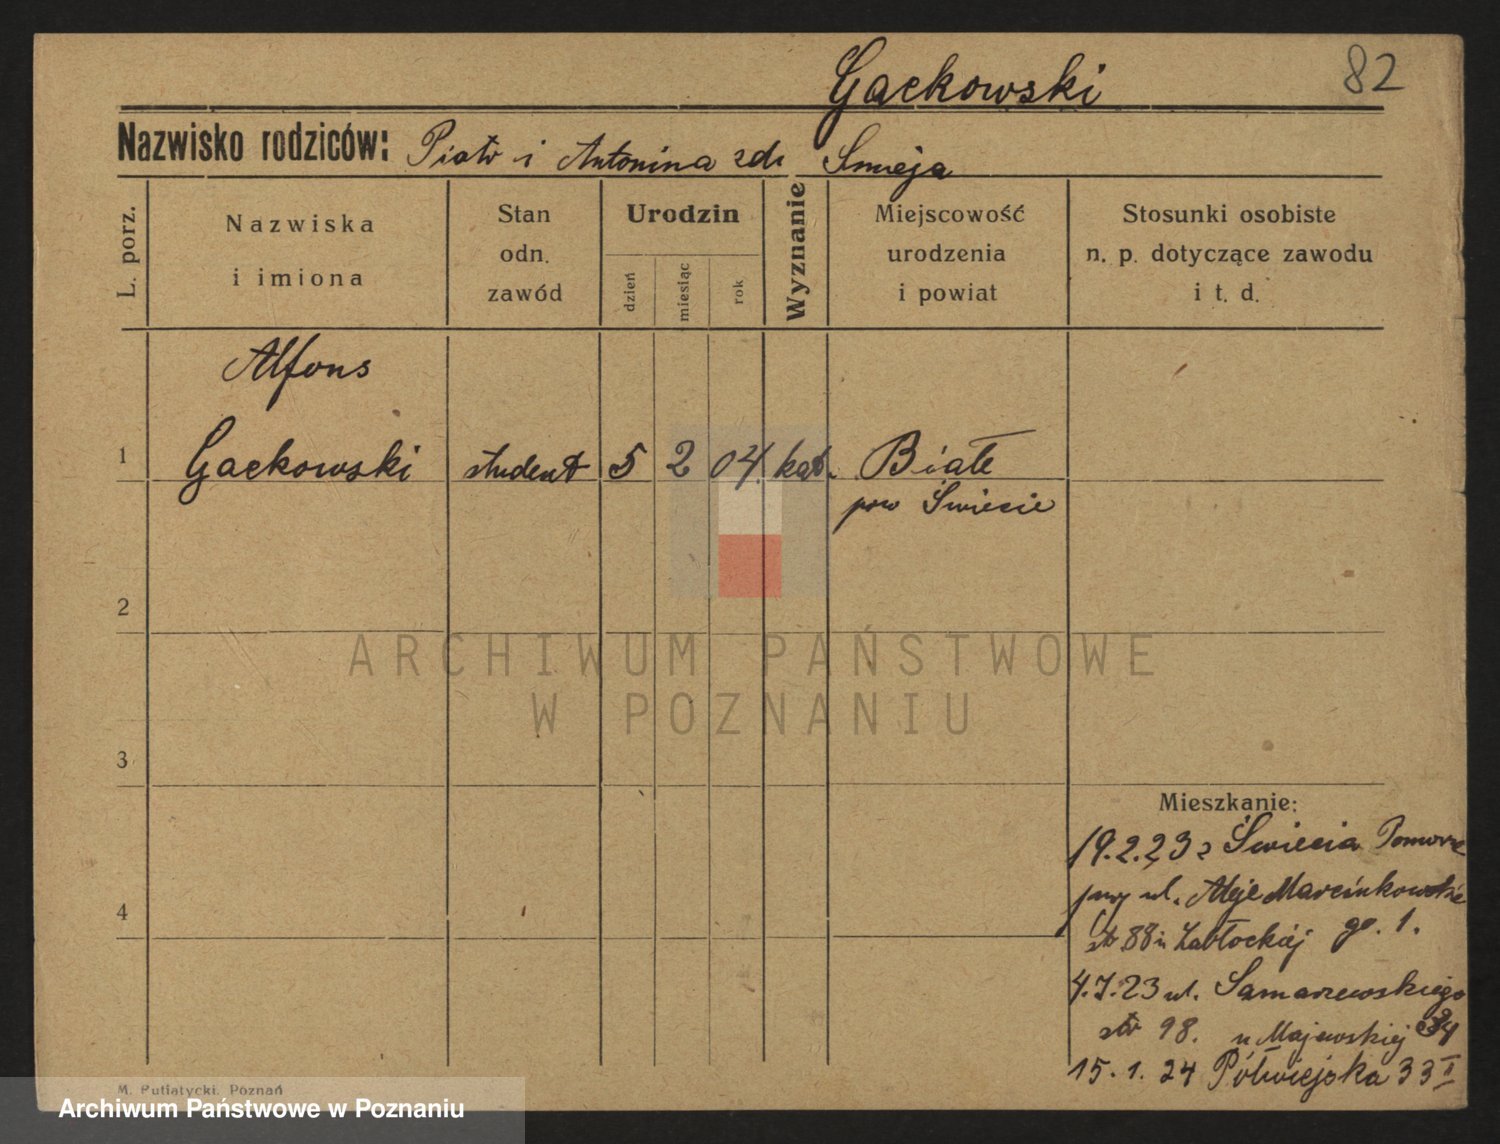 82
Gackowski
Nazwisko rodziców: Piotr i Antonina zd. Smeja
L. porz.
Nazwiska
i imiona
Stan
odn.
zawód
Urodzin
dzień
miesiąc
rok
Wyznanie
Miejscowość
urodzenia
i powiat
Stosunki osobiste
n. p. dotyczące zawodu
i t. d.
Alfons
1 Gackowski student 5 2 04. kat. Białe
pow Świecie
2
ARCHIWUM PAŃSTWOWE
W POZNANIU
3
Mieszkanie:
19.2.23 z Świecia Pomorze
ul. Aleje Marcinkowskie
4
str 88 u Zabłockiej go. 1.
4.7.23 ul. Samarzewskiego
str 98. u Majewskiej 34
15.1.24 Półwiejska 33 II
M. Putiatycki, Poznań
Archiwum Państwowe w Poznaniu